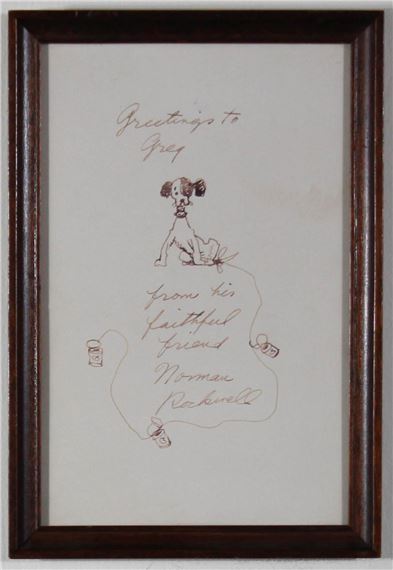 Greetings to
Greg
from his
faithful
friend
Norman
Rockwell